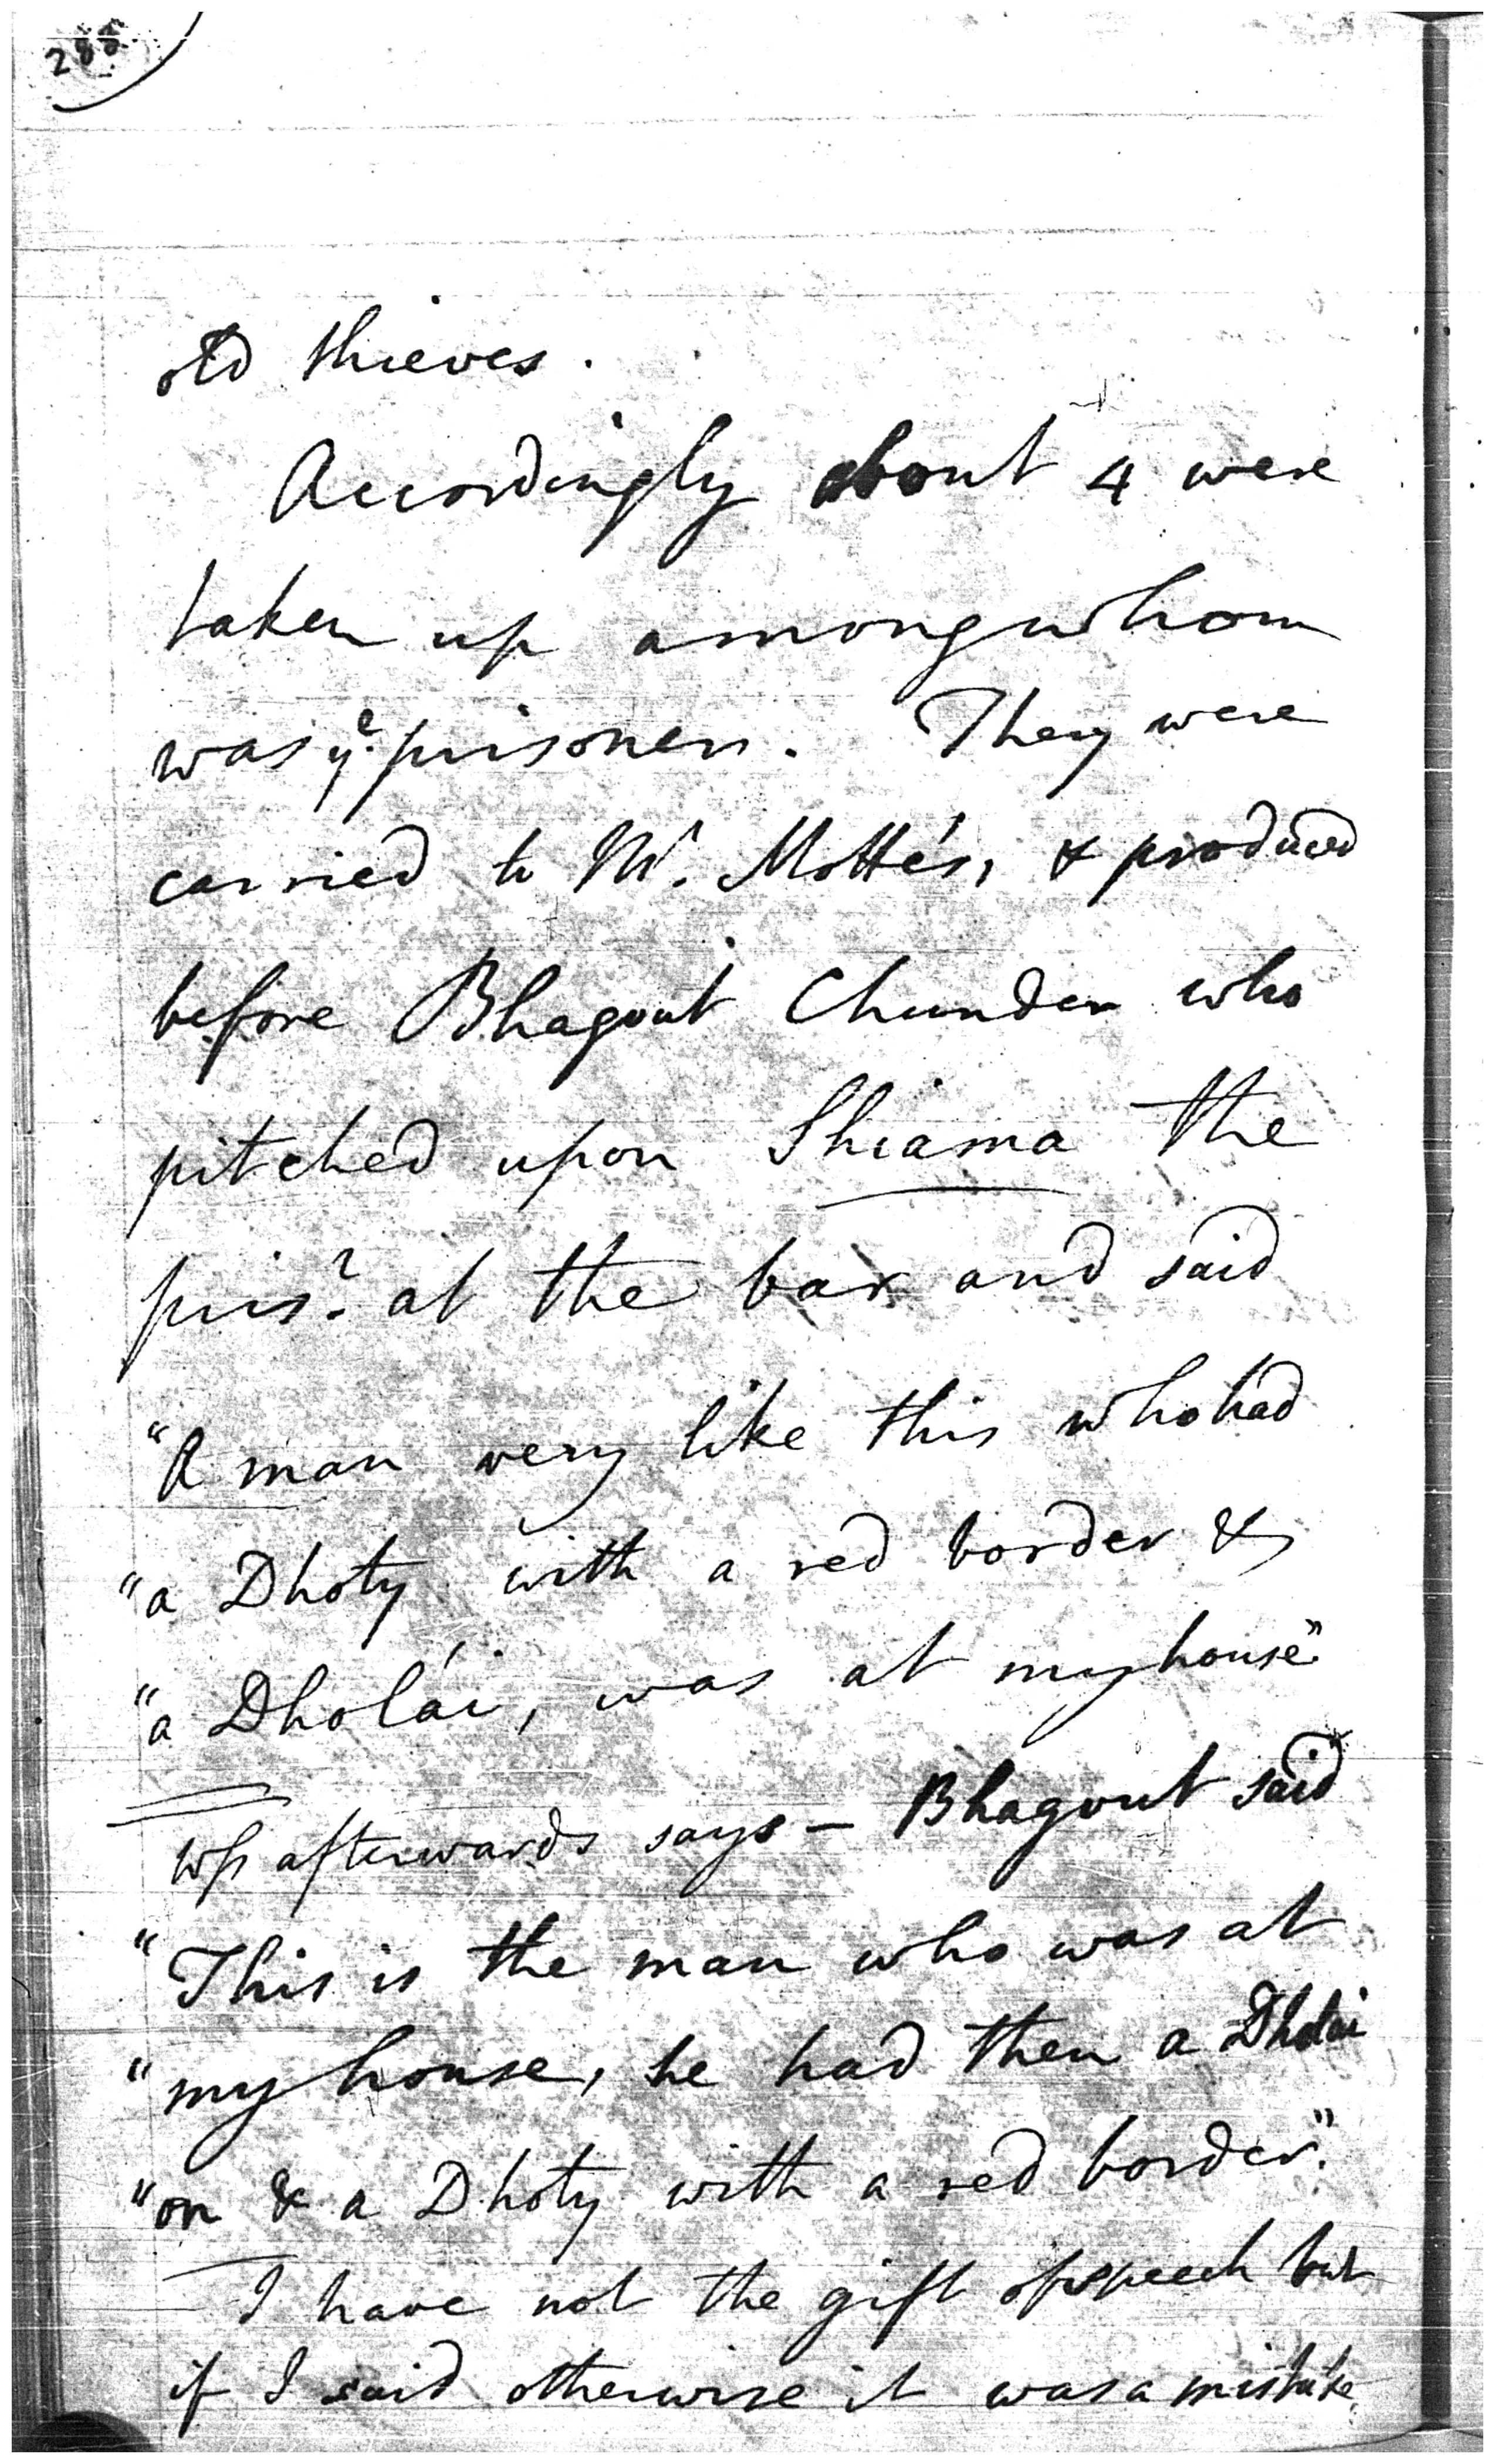 288
old thieves.
Accordingly about 4 were
taken up among whom
was ye. prisoner. They were
carried to Mr. Motte's, & produced
before Bhagout Chunder who
pitched upon Shiama the
prisr. at the bar and said
"A man very like this who had
"a Dhoty with a red border &
"a Dholái, was at my house"
Wss afterwards says — Bhagout said
"This is the man who was at
"my house, he had then a Dholai
"on & a Dhoty with a red border."
I have not the gift of speech but
if I said otherwise it was a mistake